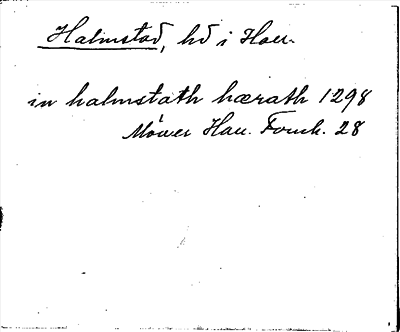 Halmstad, hd i Hall.
in halmstath hærath 1298
Möller Hall. Fornh. 28